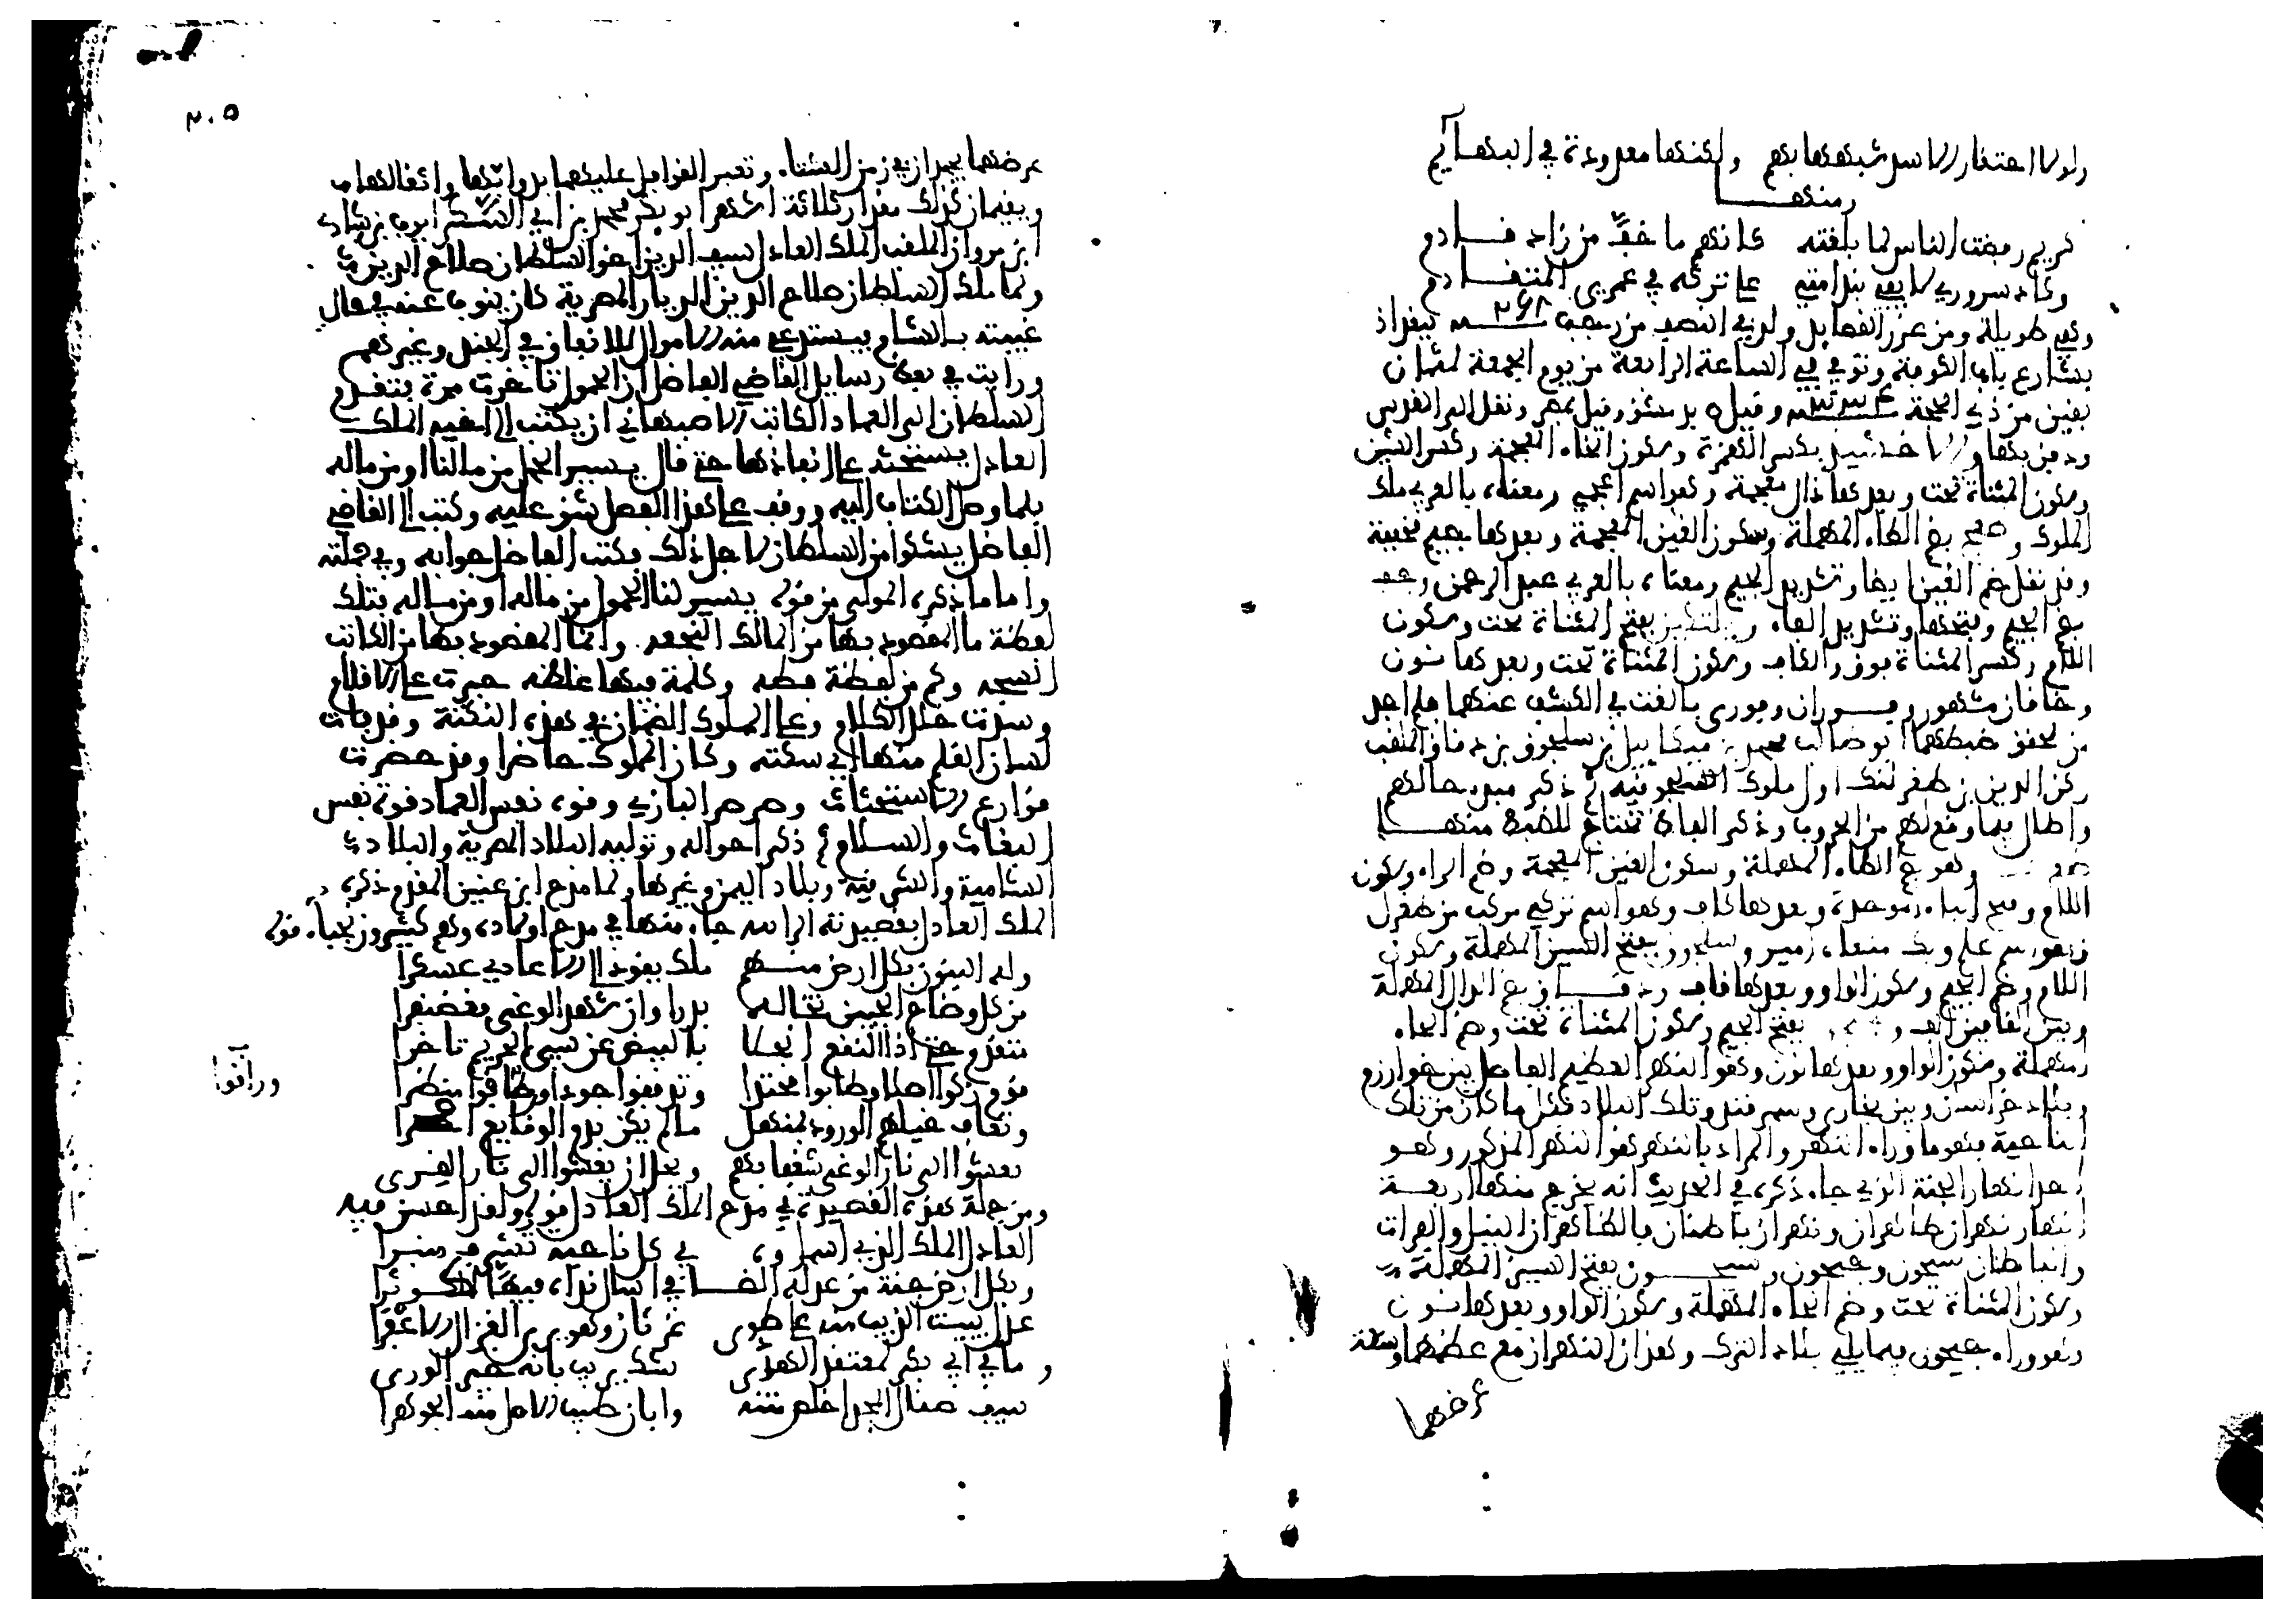 ولولا احتقار الاسد شبهتها بهم ولكنها معدودة في البهائم
ومنها
كريم رفضت الناس لما بلغته كانهم ما خف من زاد قادم
وكاد سروري لا يفي بندامتي على تركه في عمري المتقادم
وهي طويلة ومن غرر القصايد ولد في النصف من رجب ببغداد
بشارع باب الكوفة وتوفي في الساعة الرابعة من يوم الجمعة لثمان
بقين من ذي الحجة وقيل بدمشق وقيل بمصر ونقل الى القدس
ودفن بها والاخشيد بكسر الهمزة وسكون الخاء المعجمة وكسر الشين
وسكون المثناة تحت وبعدها ذال معجمة وهو اسم عجمي ومعناه بالعربي ملك
الملوك وطغج بضم الطاء المهملة وسكون الغين المعجمة وبعدها جيم خفيفة
وقد نقل ضم الغين ايضا وتشديد الجيم ومعناه بالعربي عبد الرحمن وجف
بضم الجيم وفتحها وتشديد الفاء بفتح المثناة تحت وسكون
اللام وكسر المثناة فوق والكاف وسكون المثناة تحت وبعدها نون
وخاقان مشهور وفوران وفوري بالغت في الكشف عنهما فلم اجد
من تحقق ضبطهما ابو طالب محمد بن ميكاييل بن سلجوق بن دقاق الملقب
ركن الدين بن طغرلبك اول ملوك السلجوقية ذكر مبدء حالهم
واطال فيما وقع لهم من الحروب وذكر الفاظ تحتاج للضبط منها
وهو بضم الطاء المهملة وسكون الغين المعجمة وضم الراء وسكون
اللام وفتح الباء الموحدة وبعدها كاف وهو اسم تركي مركب من طغرل
وهو اسم علم وبك معناه امير وسلجوق بفتح السين المهملة وسكون
اللام وضم الجيم وسكون الواو وبعدها قاف ودقاق بضم الدال المهملة
وبين القافين الف بفتح الجيم وسكون المثناة تحت وضم الحاء
المهملة وسكون الواو وبعدها نون وهو النهر العظيم الفاصل بين خوارزم
وبلاد خراسان وبين بخارى وسمرقند وتلك البلاد فكل ما كان من تلك
الناحية فهو ما وراء النهر والمراد بالنهر هو النهر المذكور وهو
احد انهار الجنة الذي جاء ذكره في الحديث انه يخرج منها اربعة
انهار نهران ظاهران ونهران باطنان فالظاهران النيل والفرات
والباطنان سيحون وجيحون وسيحون بفتح السين المهملة
وسكون المثناة تحت وضم الحاء المهملة وسكون الواو وبعدها نون
وهو وراء جيحون فيما يلي بلاد الترك وهذان النهران مع عظمهما وسعة
عرضهما
٢٠٥
عرضهما يجمدان في زمن الشتاء وتعبر القوافل عليهما بدوابها واثقالها
ويقيمان كذلك مقدار ثلاثة اشهر ابو بكر محمد بن ابي الشكر ايوب بن شادي
ابن مروان الملقب الملك العادل سيف الدين اخو السلطان صلاح الدين
ولما ملك السلطان صلاح الدين الديار المصرية كان ينوب عنه في حال
غيبته بالشام ويستدعي منه الاموال للانفاق في الجند وغيرهم
ورايت في بعض رسايل القاضي الفاضل ان الحمول تاخرت مرة فتقدم
السلطان الى العماد الكاتب الاصبهاني ان يكتب الى اخيه الملك
العادل يستحثه على انفاذها حتى قال يسير الحمل من مالنا او من ماله
فلما وصل الكتاب اليه ووقف على هذا الفصل شق عليه وكتب الى القاضي
الفاضل يشكوا من السلطان لاجل ذلك فكتب الفاضل جوابه وفي جملته
واما ما ذكره المولى من قوله يسير لنا الحمل من مالنا او من ماله فتلك
لفظة ما المقصود بها من المالك النجعه وانما المقصود بها من الكاتب
السجعه وكم من لفظة فظه وكلمة فيها غلظه جبرت عي الاقلام
وسدت خلل الكلام وعلى المملوك الضمان في هذه النكتة وقد فات
لسان القلم منها اي سكته وكان المملوك حاضرا وقد حضرت
قوارع الاستحثاث وصرصر البازي وقوة نفس العماد قوة نفس
البغاث والسلام ذكر احواله وتوليه البلاد المصرية والبلاد
الشامية والشرقية وبلاد اليمن وغيرها ولما مدح ابن عنين المقدم ذكره
الملك العادل بقصيدته الرائيه جاء منها في مدح اولاده وهم كثيرون نجباء قوله
وله البنون بكل ارض منهم ملك يقود الى الاعادي عسكرا
من كل وضاح الجبين تخاله بدرا وان شهد الوغى فغضنفرا
متقدم حتى اذا النقع انجلا بالبيض عن سبي الحريم تاخرا
قوم زكوا اصلا وطابوا محتدا وتدفقوا جودا وراقوا منظرا
وراقوا
وتعاف خيلهم الورود بمنهل مالم يكن بدم الوقايع احمرا
يعشوا الى نار الوغى شغفا بهم ويجل ان يعشوا الى نار القرى
ومن جملة هذه القصيدة في مدح الملك العادل قوله ولقد احسن فيه
العادل الملك الذي اسماوه في كل ناحية تشرف منبرا
وبكل ارض جنة من عدله الصافي اسال نداه فيها الكوثرا
عدل يبيت الذيب منه على طوى غرثان وهو يرى الغزال الاعفرا
ما في ابي بكر لمعتقد الهدى شك يريب بانه خير الورى
سيف صقال المجد اخلص متنه وابان طيب الاصل منه الجوهرا